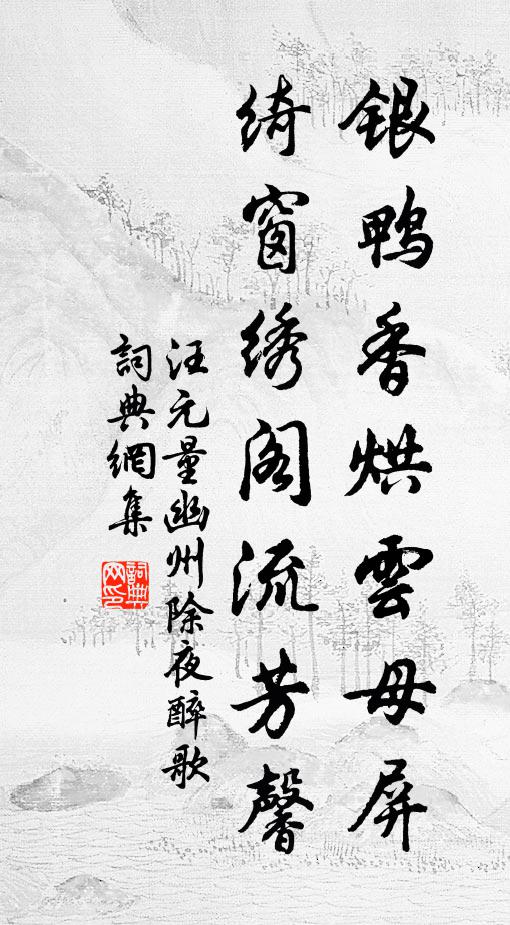 银鸭香烘雲母屏
绮窗绣阁流芳馨
汪元量幽州除夜醉歌
詞典網集
詞典网印